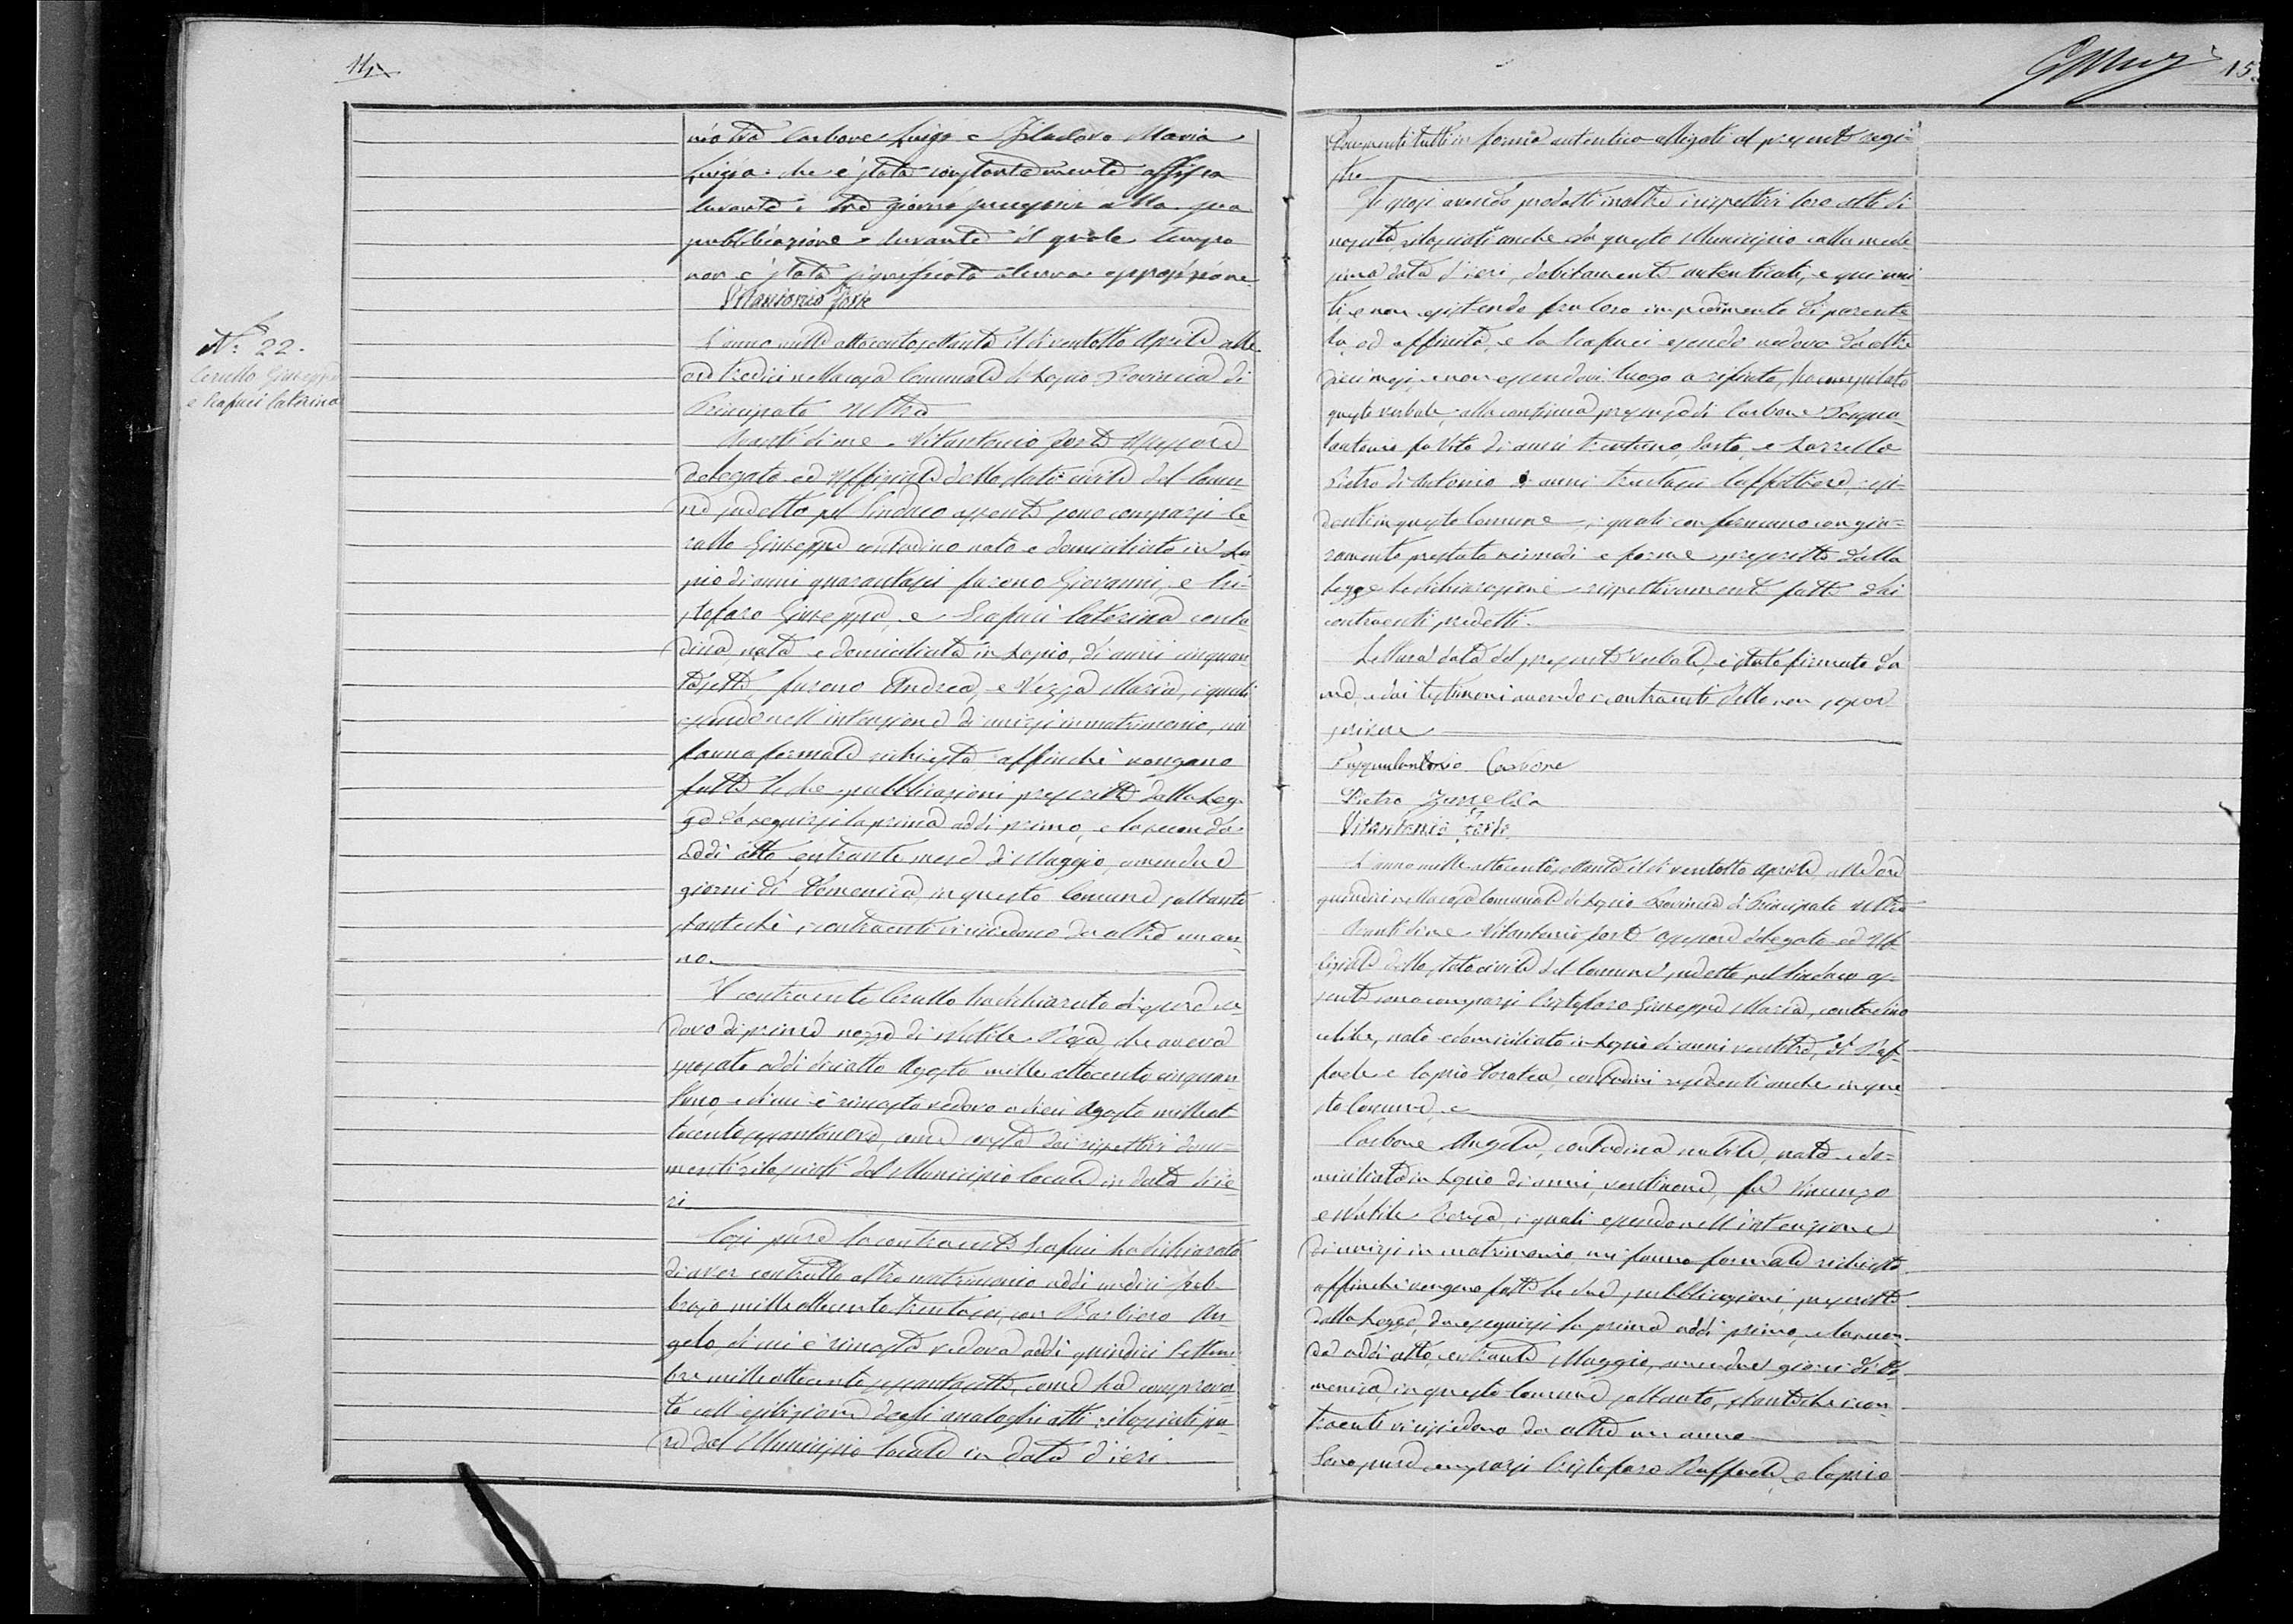 11
nio tra Carbone Luigi e Filadoro Maria
Luigia che è stata constantemente affissa
durante i tre giorni successivi alla sua
pubblicazione, durante il quale tempo
non è stata significata alcuna opposizione
Vitantonio Forte
N.º 22.
Cerullo Giuseppe
e Scafuci Caterina
L'anno mille ottocento settanta il dì ventotto Aprile alle
ore tredici nella casa Comunale di Lapio Provincia di
Principato Ultra
Avanti di me Vitantonio Forte Assessore
delegato ed Uffiziale dello stato civile del Comu-
ne sudetto pel Sindaco assente sono comparsi Ce-
rullo Giuseppe contadino nato e domiciliato in La
pio di anni quarantasei furono Giovanni, e Cri-
stofaro Giuseppa, e Scafuci Caterina conta-
dina, nata e domiciliata in Lapio, di anni cinquan
tasette furono Andrea, e Nuzza Maria, i quali
essendo nell'intenzione di unirsi in matrimonio, mi
fanno formale richiesta affinchè vengano
fatte le due pubblicazioni prescritte dalla Leg-
ge da seguirsi la prima addì primo, e la seconda
addì otto entrante mese di Maggio, amendue
giorni di Domenica, in questo Comune soltanto
stantechè i contraenti vi risiedono da oltre un an-
no.
Il contraente Cerullo ha dichiarato di essere ve-
dovo di prime nozze di Nutile Rosa, che aveva
sposato addì diciotto Agosto mille ottocento cinquan
tuno, e di cui è rimasto vedovo a dieci Agosto milleot
tocento sessantanove, come costa dai rispettivi docu-
menti rilasciati dal Municipio locale in data di ie
ri
Così pure la contraente Scafuci ha dichiarato
di aver contratto altro matrimonio addì undici Feb
brajo mille ottocento trentasei, con Barbiero An-
gelo, di cui è rimasta vedova addì quindici Settem
bre mille ottocento sessantasette, come ha comprova-
to coll'esibizione degli analoghi atti rilasciati pu-
re dal Municipio locale in data d'ieri
15
Documenti tutti in forma autentica alligati al presente regi-
stro
Gli sposi avendo prodotti inoltre i rispettivi loro atti di
nascita, rilasciati anche da questo Municipio colla mede-
sima data d'ieri, debitamente autenticati, e qui uni
ti, e non esistendo fra loro impedimento di parente
la, od affinità, e la Scafuci essendo vedova da oltre
dieci mesi, e non essendovi luogo a rifiuto, ho compilato
questo verbale alla continua presenza di Carbone Pasqua-
lantonio fu Vito di anni trentuno, Sarto, e Zarrella
Pietro di Antonio di anni trentasei Caffettiere, resi-
denti in questo Comune, i quali confermano con giu-
ramento prestato nei modi e forme prescritte dalla
Legge le dichiarazioni rispettivamente fatte dai
contraenti predetti.
Lettura data del presente verbale, è stato firmato da
me, e dai testimoni avendo i contraenti detto non saper
scrivere
Pasqualantonio Carbone
Pietro Zarrella
Vitantonio Forte
L'anno mille ottocento settanta il dì ventotto Aprile, alle ore
quindici nella casa Comunale di Lapio Provincia di Principato Ultra
Avanti di me Vitantonio Forte Assessore delegato ed Uf-
fiziale dello stato civile del Comune sudetto pel Sindaco as-
sente sono comparsi Cristofaro Giuseppe Maria, contadino
celibe, nato e domiciliato in Lapio di anni ventitre, di Raf-
faele e Caprio Dorotea, contadini residenti anche in que
sto Comune, e
Carbone Angela, contadina nubile, nata e do-
miciliata in Lapio di anni, ventinove, fu Vincenzo
e Nutile Teresa, i quali essendo nell'intenzione
di unirsi in matrimonio, mi fanno formale richiesta
affinchè vengano fatte le due pubblicazioni, prescritte
dalla Legge, da eseguirsi la prima addì primo, e la secon-
da addì otto, entrante Maggio, amendue giorni di Do
menica, in questo Comune soltanto, stantechè i con-
traenti vi risiedono da oltre un anno
Sono pure comparsi Cristofaro Raffaele, e Caprio